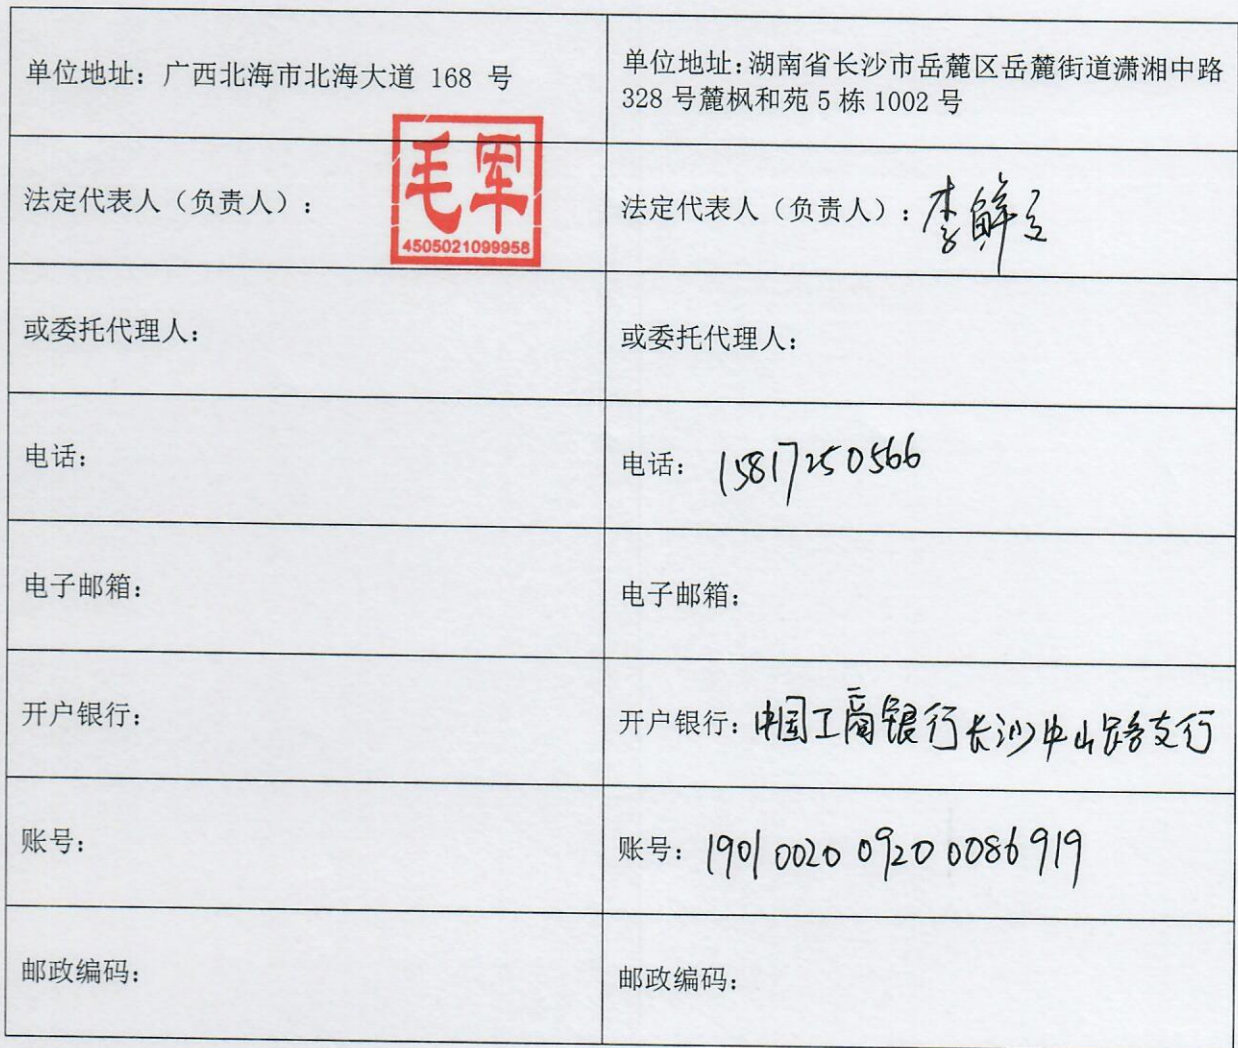 单位地址：广西北海市北海大道 168 号
单位地址：湖南省长沙市岳麓区岳麓街道潇湘中路
328 号麓枫和苑 5 栋 1002 号
法定代表人（负责人）：
毛军
4505021099958
法定代表人（负责人）：李
或委托代理人：
或委托代理人：
电话：
电话：15817250566
电子邮箱：
电子邮箱：
开户银行：
开户银行：中国工商银行长沙中山路支行
账号：
账号：1901 0020 0920 0086919
邮政编码：
邮政编码：